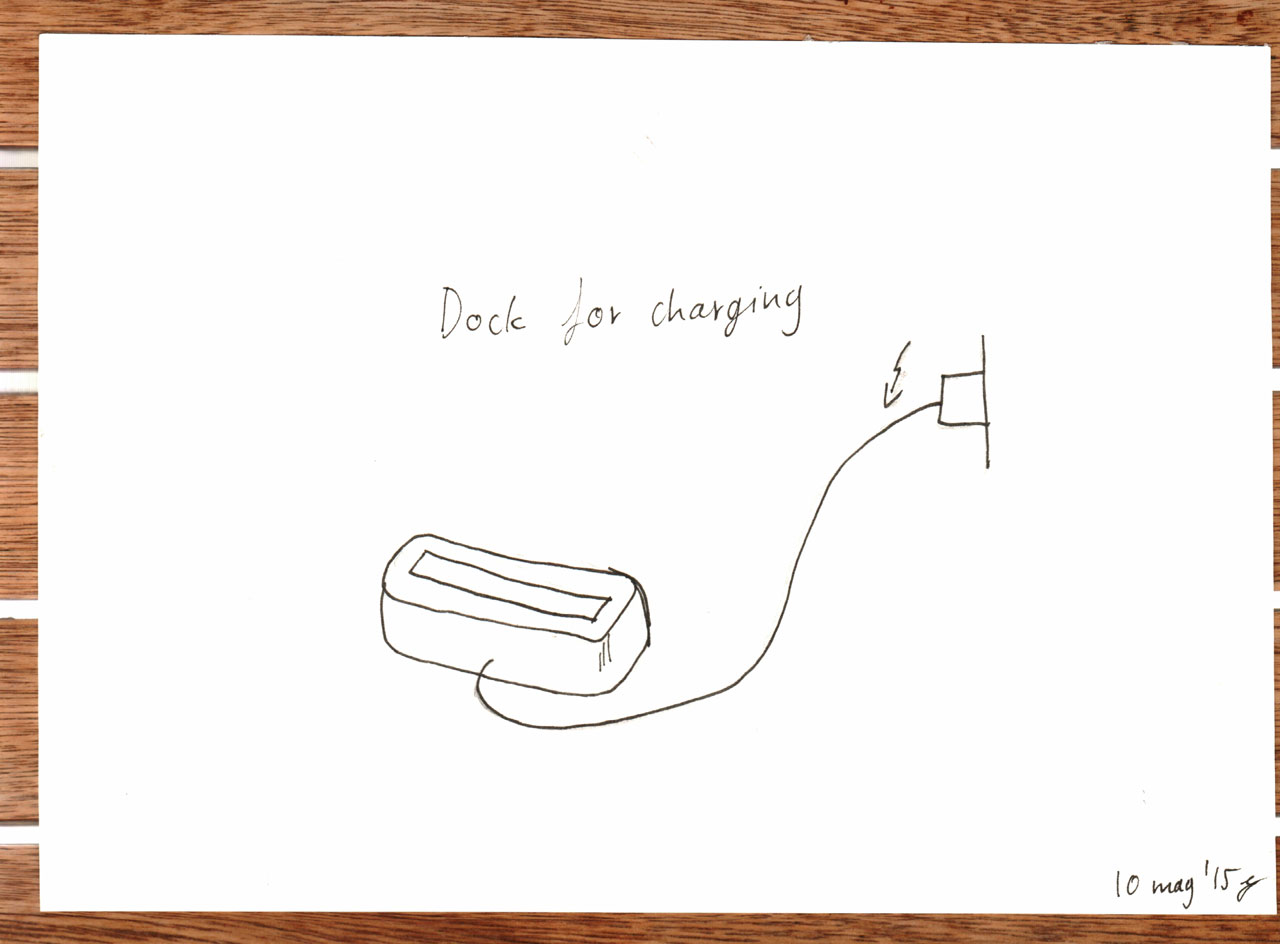 Dock for charging
10 mag '15